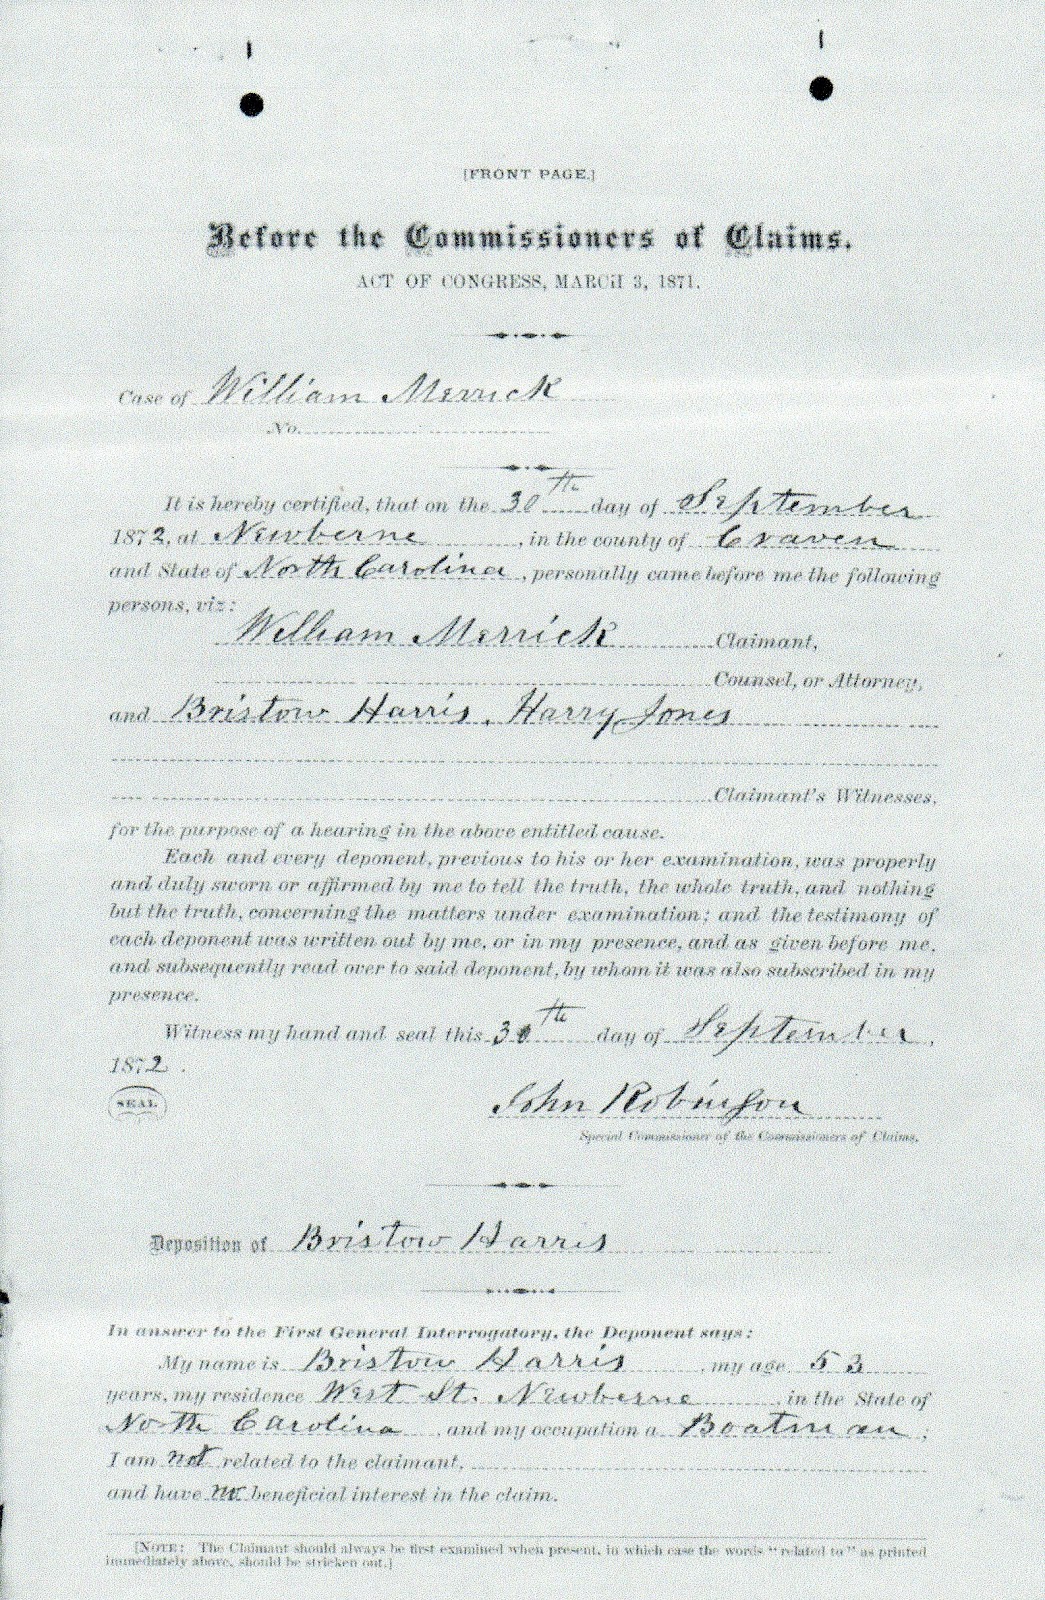 [FRONT PAGE.]
Before the Commissioners of Claims.
ACT OF CONGRESS, MARCH 3, 1871.
Case of William Merrick
No.
It is hereby certified, that on the 30th day of September
1872, at Newberne, in the county of Craven
and State of North Carolina, personally came before me the following
persons, viz:
William Merrick Claimant,
Counsel, or Attorney,
and Bristow Harris, Harry Jones
Claimant's Witnesses,
for the purpose of a hearing in the above entitled cause.
Each and every deponent, previous to his or her examination, was properly
and duly sworn or affirmed by me to tell the truth, the whole truth, and nothing
but the truth, concerning the matters under examination; and the testimony of
each deponent was written out by me, or in my presence, and as given before me,
and subsequently read over to said deponent, by whom it was also subscribed in my
presence.
Witness my hand and seal this 30th day of September,
1872.
SEAL
John Robinson
Special Commissioner of the Commissioners of Claims.
Deposition of Bristow Harris
In answer to the First General Interrogatory, the Deponent says:
My name is Bristow Harris, my age 53
years, my residence West St. Newberne, in the State of
North Carolina, and my occupation a Boatman;
I am not related to the claimant,
and have no beneficial interest in the claim.
[NOTE: The Claimant should always be first examined when present, in which case the words "related to" as printed
immediately above, should be stricken out.]